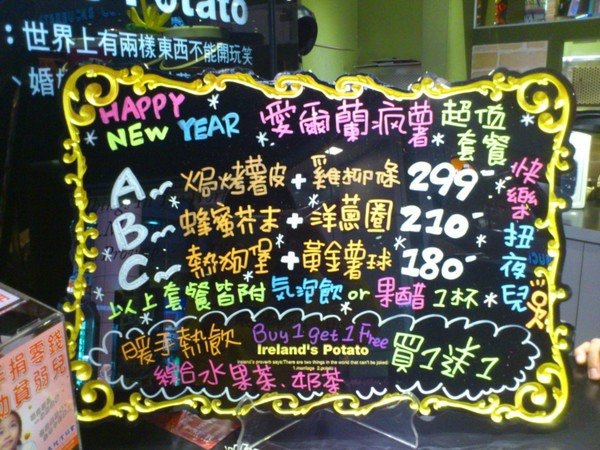 Potato
：世界上有兩樣東西不能開玩笑
、婚
HAPPY NEW YEAR
愛爾蘭瘋薯超位套餐
A～焗烤薯皮+雞柳條 299-
B～蜂蜜芥末+洋蔥圈 210-
C～熱狗堡+黃金薯球 180-
快樂扭夜兒
以上套餐皆附 氣泡飲 or 果醋 1杯
暖手熱飲 Buy 1 get 1 Free 買1送1
Ireland's Potato
Ireland's proverb says:There are two things in the world that can't be joked:
1.marriage 2.potato
綜合水果茶、奶茶
捐零錢
助貧弱兒